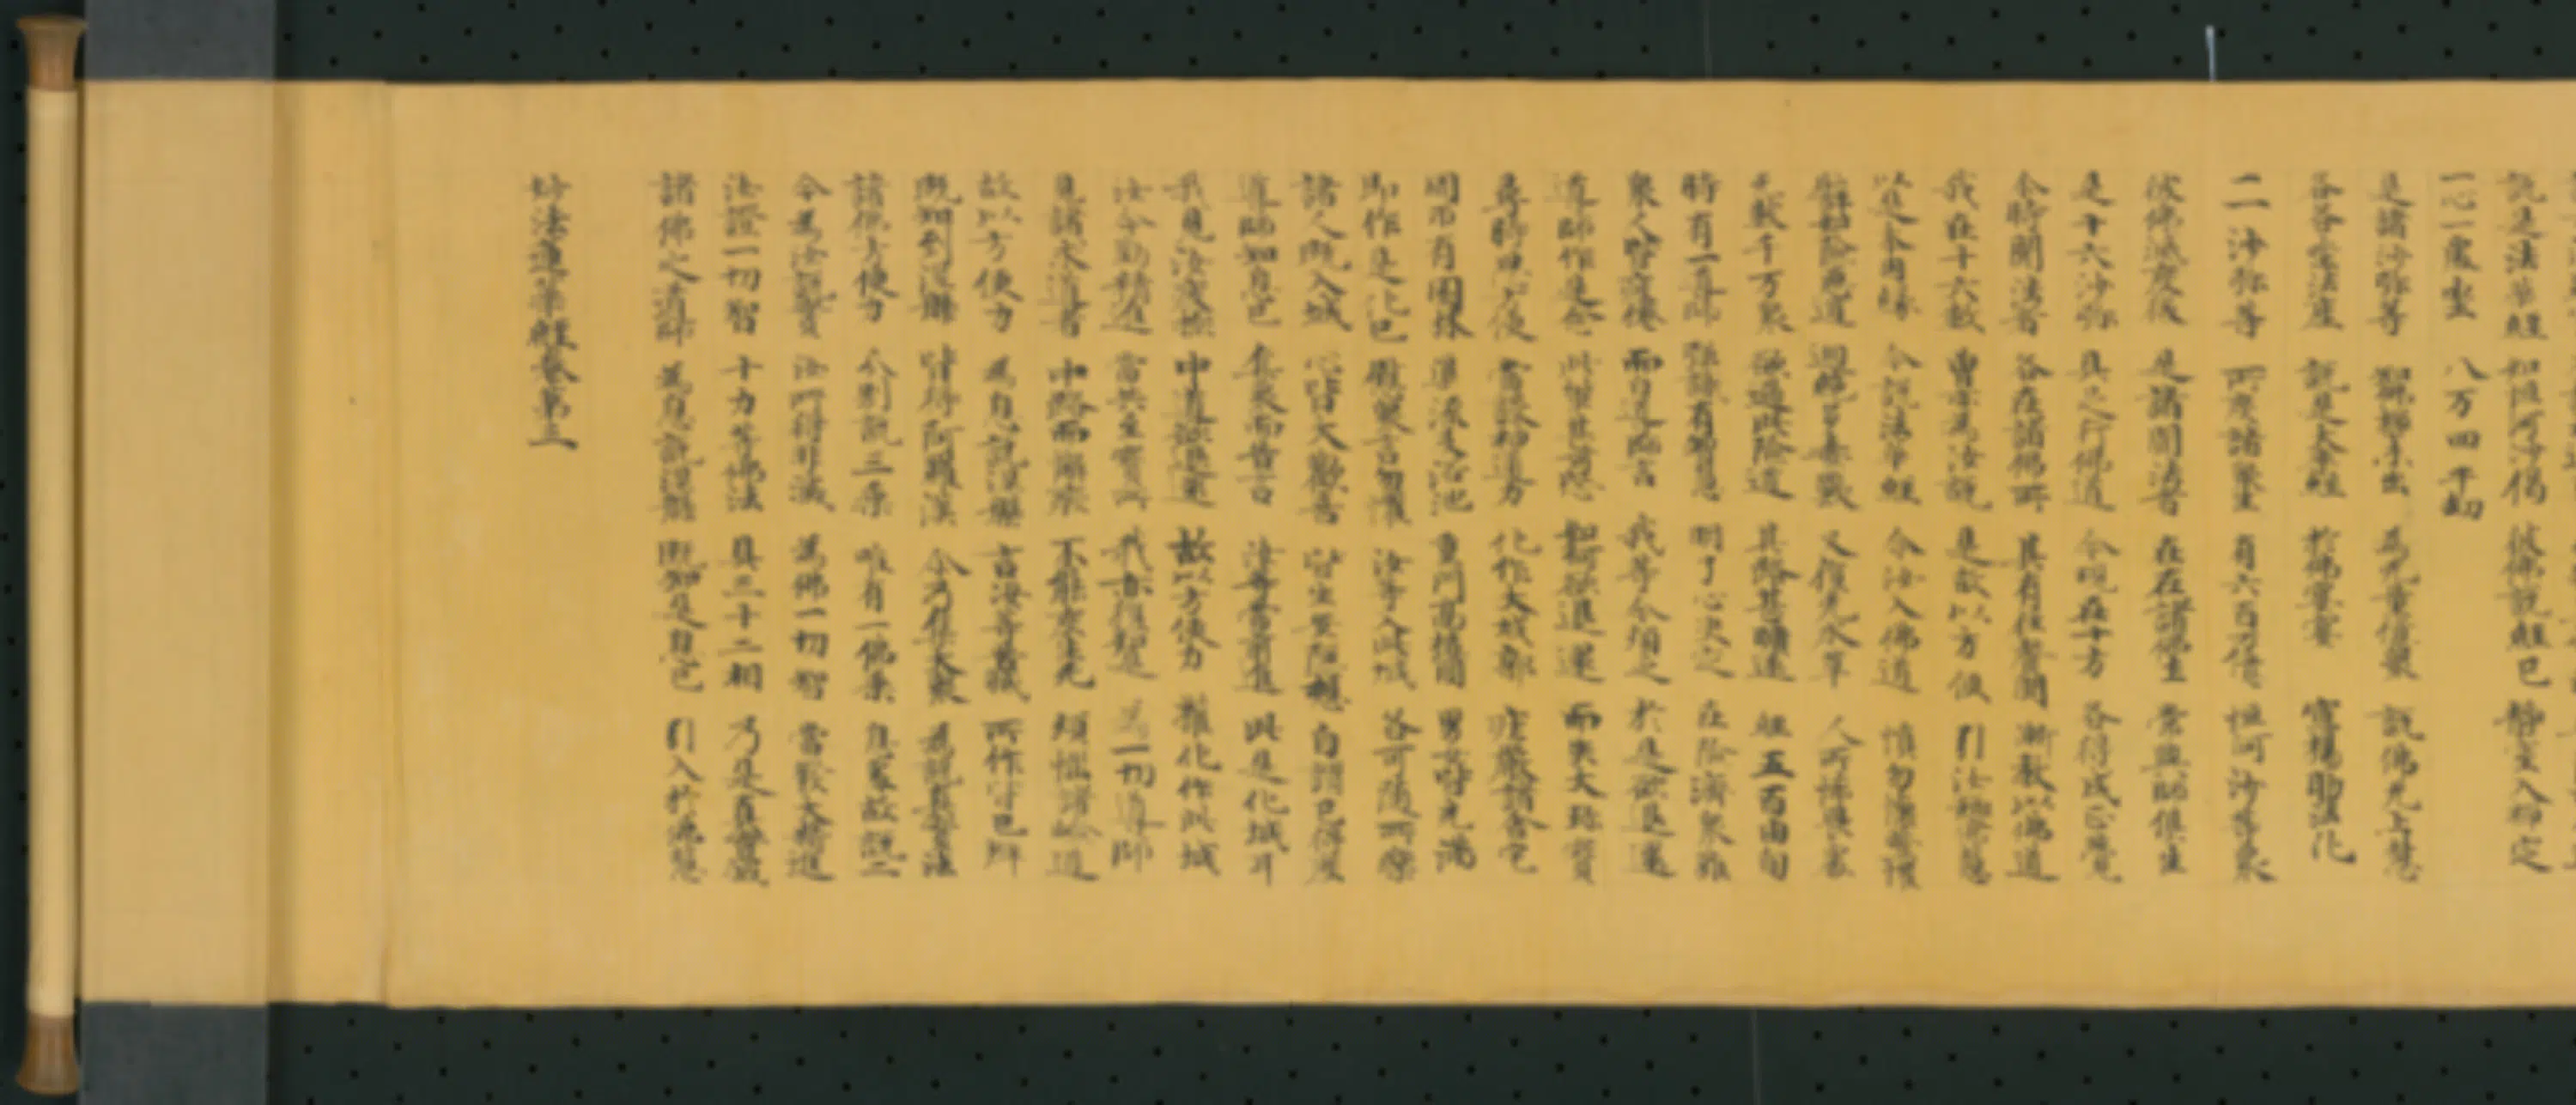 說是法華經 如恒河沙偈 彼佛說經已 靜室入禪定
一心一處坐 八万四千劫
是諸沙弥等 知佛禪未出 為无量億衆 說佛无上慧
各各坐法座 說是大乘經 於佛宴寂 宣揚助法化
一一沙弥等 所度諸衆生 有六百万億 恒河沙等衆
彼佛滅度後 是諸聞法者 在在諸佛土 常與師俱生
是十六沙弥 具足行佛道 今現在十方 各得成正覺
尒時聞法者 各在諸佛所 其有住聲聞 漸教以佛道
我在十六數 曾亦為汝說 是故以方便 引汝趣佛慧
以是本因緣 今說法華經 令汝入佛道 慎勿懷驚懼
譬如險惡道 迥絕多毒獸 又復无水草 人所怖畏處
无數千万衆 欲過此險道 其路甚曠遠 經五百由旬
時有一導師 強識有智慧 明了心決定 在險濟衆難
衆人皆疲惓 而白導師言 我等今頓乏 於此欲退還
導師作是念 此輩甚可愍 如何欲退還 而失大珍寶
尋時思方便 當設神通力 化作大城郭 莊嚴諸舍宅
周帀有園林 渠流及浴池 重門高樓閣 男女皆充滿
即作是化已 慰衆言勿懼 汝等入此城 各可隨所樂
諸人既入城 心皆大歡喜 皆生安隱想 自謂已得度
導師知息已 集衆而告言 汝等當前進 此是化城耳
我見汝疲極 中道欲退還 故以方便力 權化作此城
汝今勤精進 當共至寶所 我亦復如是 為一切導師
見諸求道者 中路而懈廢 不能度生死 煩惱諸險道
故以方便力 為息說涅槃 言汝等苦滅 所作皆已辦
既知到涅槃 皆得阿羅漢 尒乃集大衆 為說真實法
諸佛方便力 分別說三乘 唯有一佛乘 息處故說二
今為汝說實 汝所得非滅 為佛一切智 當發大精進
汝證一切智 十力等佛法 具三十二相 乃是真實滅
諸佛之導師 為息說涅槃 既知是息已 引入於佛慧
妙法蓮華經卷第三